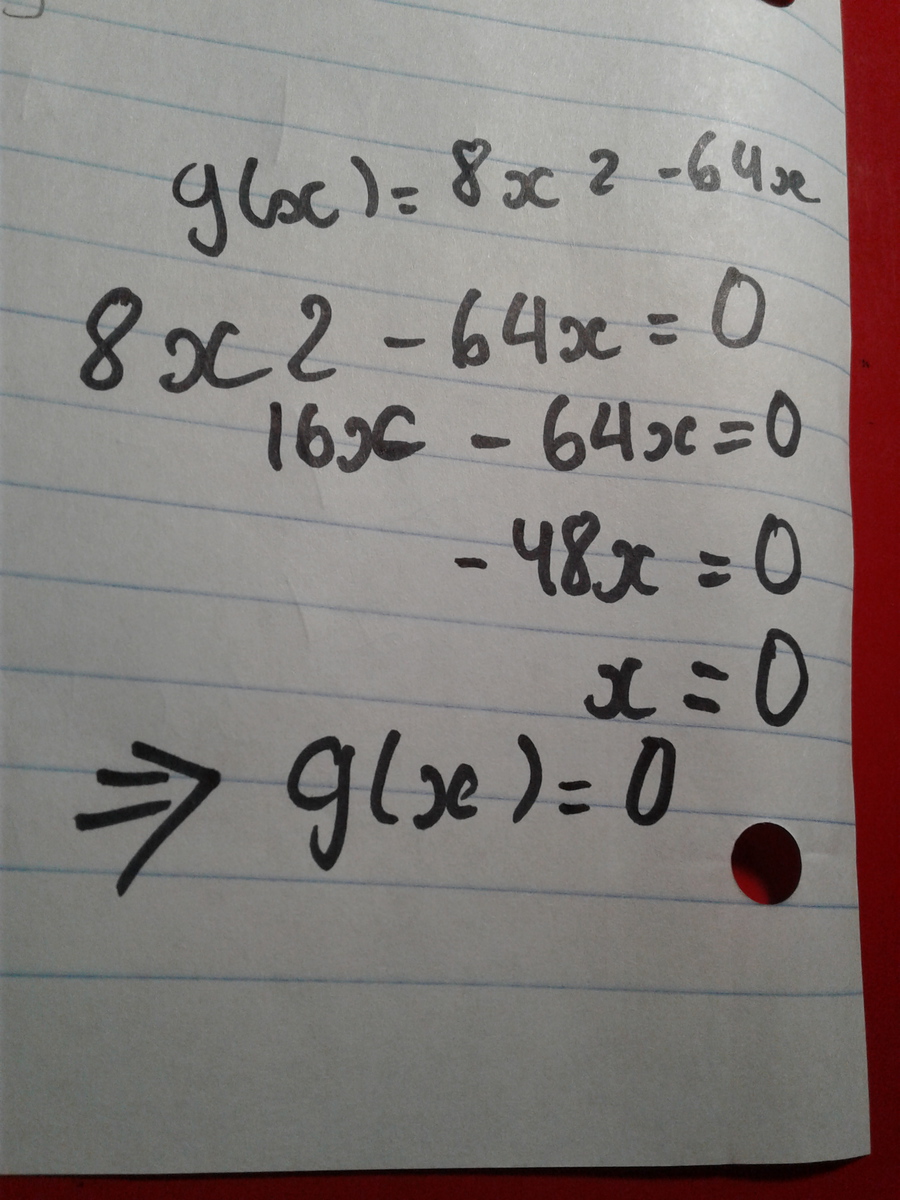 g(x) = 8x 2 - 64x
8x 2 - 64x = 0
16x - 64x = 0
- 48x = 0
x = 0
⇒ g(x) = 0